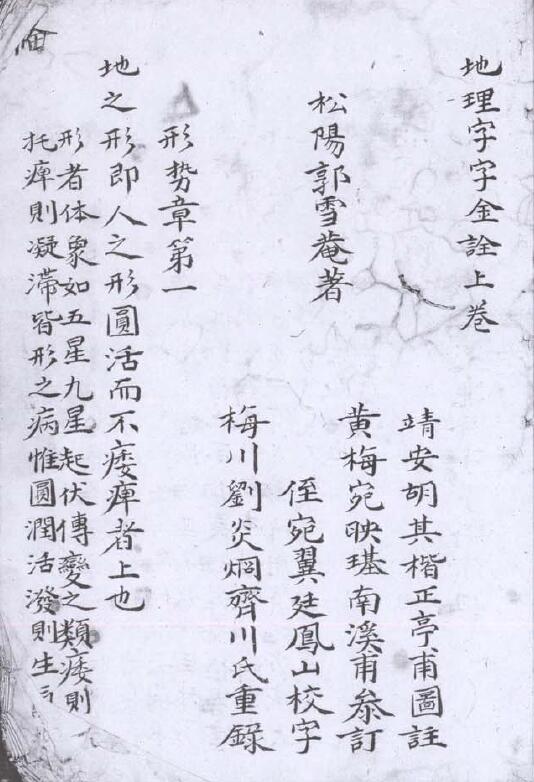 地理字字金詮上卷
松陽郭雪菴著
靖安胡其楷正亭甫圖註
黃梅宛映璂南溪甫叅訂
侄宛翼廷鳳山校字
梅川劉炎炯齊川氏重錄
形势章第一
地之形即人之形圓活而不痿痺者上也
形者体象如五星九星起伏傳變之類痿則
托痺則凝滯皆形之病惟圓潤活潑則生